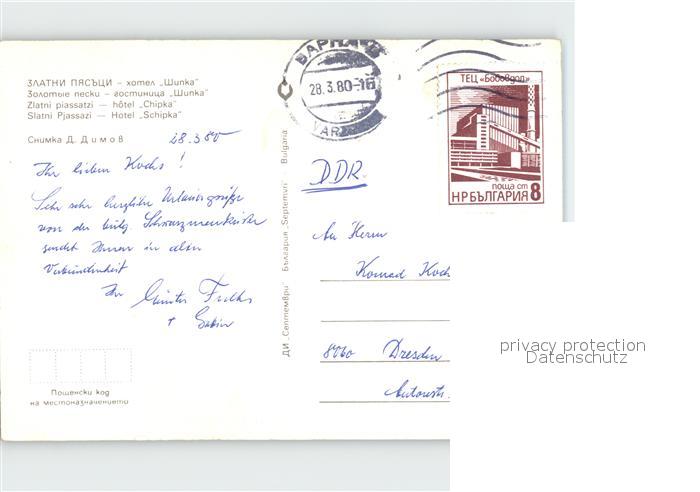 ЗЛАТНИ ПЯСЪЦИ – хотел „Шипка"
Золотые пески – гостиница „Шипка"
Zlatni piassatzi – hôtel „Chipka"
Slatni Pjassazi – Hotel „Schipka"
Снимка Д. Димов
28.3.80
Ihr lieben Kochs!
Sehr sehr herzliche Urlaubsgrüße
von der bulg. Schwarzmeerküste
sendet Ihnen in alter
Verbundenheit
Ihr Günter Fuchs
+
Пощенски код
на местоназначението
ДИ „Септември" България „Septemvri" Bulgaria
ВАРНА
28.3.80-16
VAR
ТЕЦ «Бобовдол»
поща ст
НРБЪЛГАРИЯ 8
DDR
An Herrn
Konrad Koch
8060 Dresden
privacy protection
Datenschutz